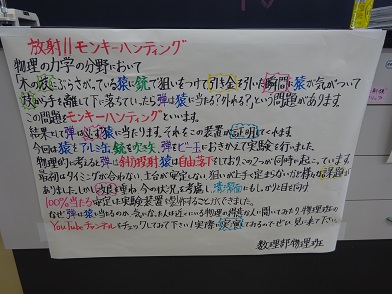 放射||モンキーハンティング
物理の力学の分野において
「木の枝にぶらさがっている猿に銃で狙いをつけて引き金を引いた瞬間に猿が気がついて
枝から手を離して下に落ちていったら弾は猿に当たる?外れる?」という問題があります
この問題をモンキーハンティングといいます。
結果としては弾は必ず猿に当たります。それをこの装置が証明してくれます。
今回は猿をアルミ缶、銃を吹き矢、弾をビー玉におきかえて実験を行いました。
物理的に考えると弾は斜方投射猿は自由落下をしておりこの2つが同時に起こっています。
最初はタイミングが合わない、土台が安定しない 狙いが上手く定まらないなど様々な課題が
ありました。しかし改良を重ね 今の状況を考慮し、
100%当たる安定した実験装置を製作することができました。
なぜ弾は猿に当たるのか、気になった人は近くにいる物理の得意な人に聞いてみたり、物理班の
YouTubeチャンネルをチェックしてみて下さい!実際に実験しておるのでぜひ見て下さい。
数理部物理班